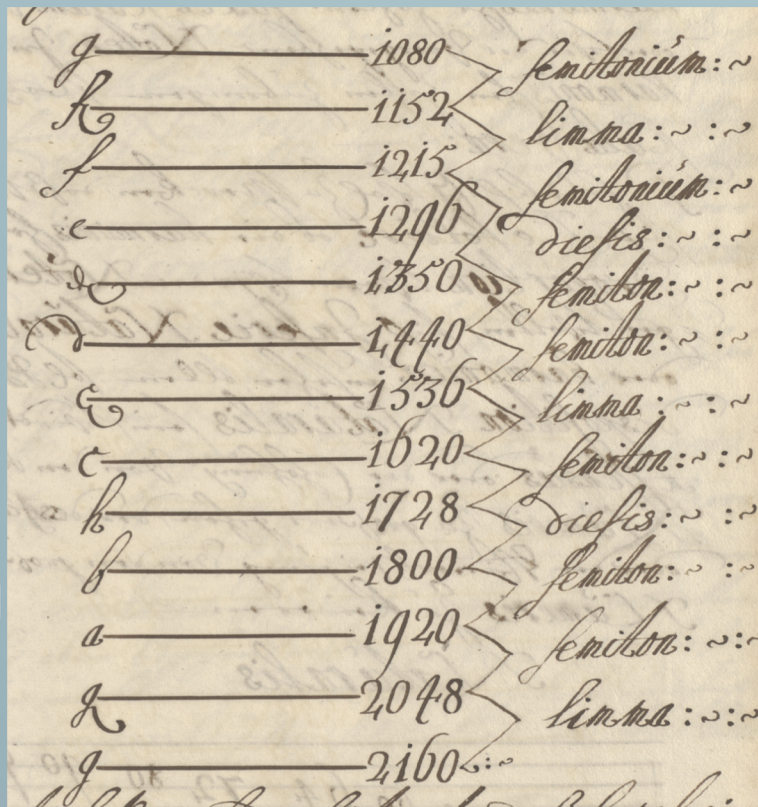 g 1080 semitonium: ~
1152 limma: ~ : ~
f 1215 semitonium: ~
e 1296 diesis: ~ : ~
1350 semiton: ~ : ~
d 1440 semiton: ~ : ~
1536 limma: ~ : ~
c 1620 semiton: ~ : ~
h 1728 diesis: ~ : ~
b 1800 semiton: ~ : ~
a 1920 semiton: ~ : ~
2048 limma: ~ : ~
g 2160 : ~